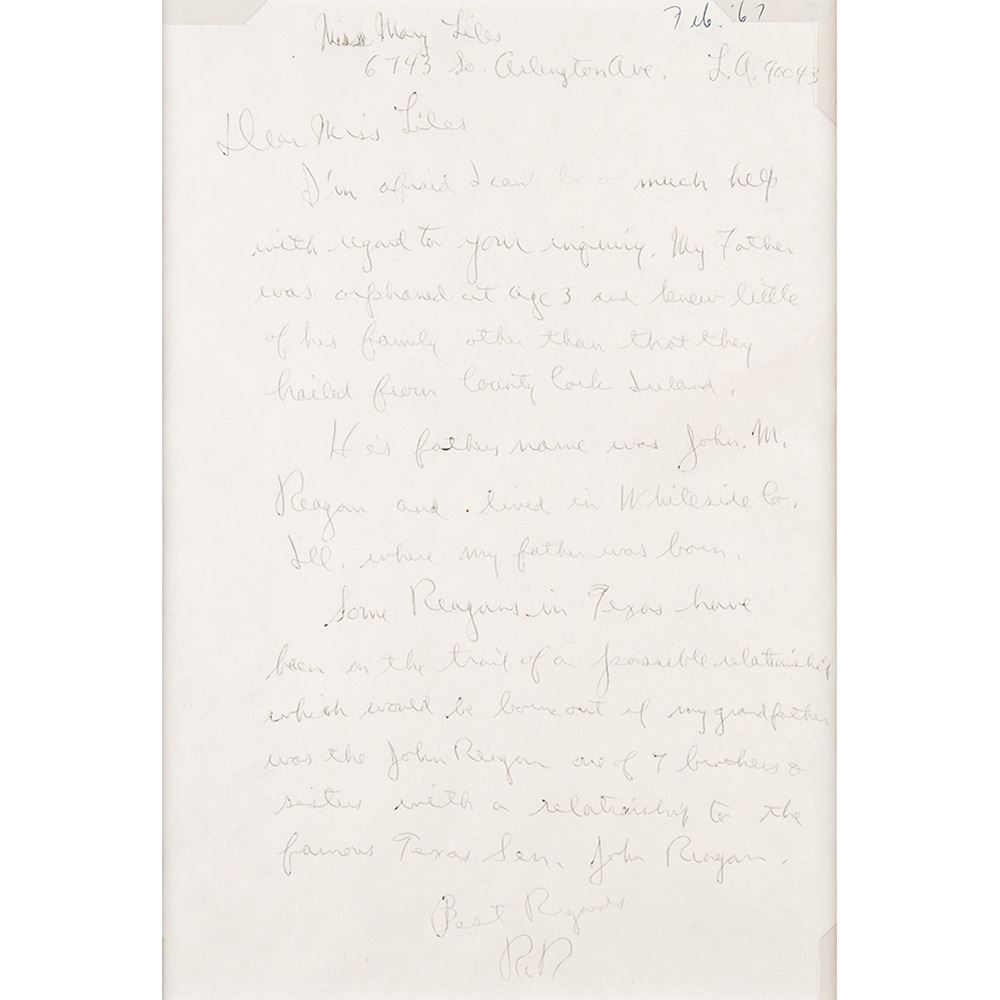 Feb. '67
Miss Mary Liles
6743 So. Arlington Ave. L.A. 90043
Dear Miss Liles
I'm afraid I can't be of much help
with regard to your inquiry. My Father
was orphaned at age 3 and knew little
of his family other than that they
hailed from County Cork Ireland.
His fathers name was John. M.
Reagan and lived in Whiteside Co.
Ill. where my father was born.
Some Reagans in Texas have
been on the trail of a possible relationship
which would be borne out if my grandfather
was the John Reagan one of 7 brothers &
sisters with a relationship to the
famous Texas Sen. John Reagan.
Best Regards
RR